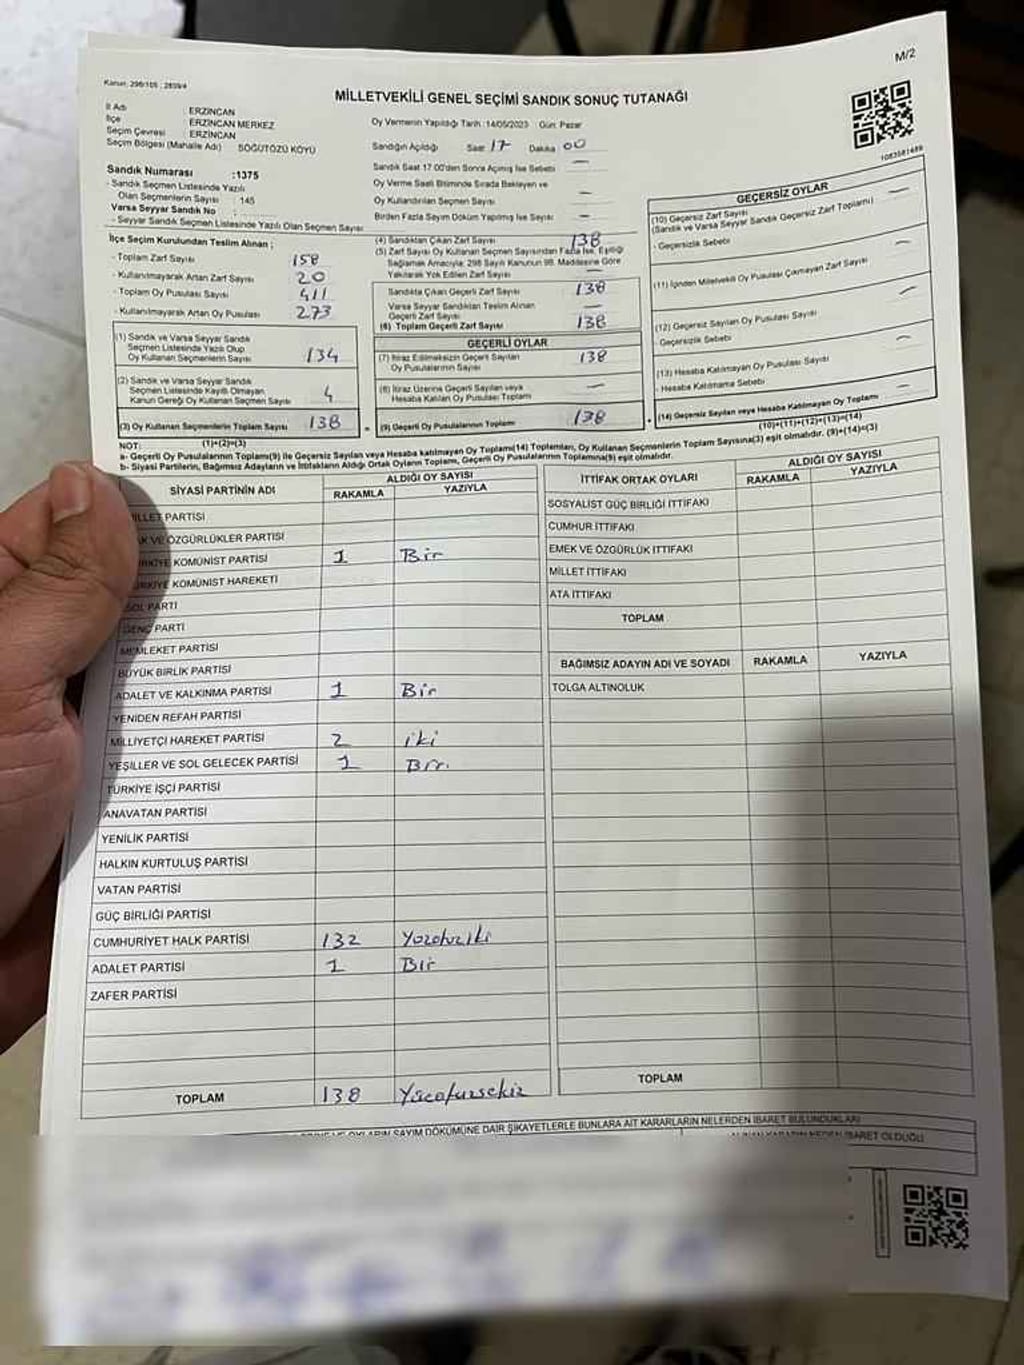 M/2
Kanun: 298/105 ; 2839/4
MİLLETVEKİLİ GENEL SEÇİMİ SANDIK SONUÇ TUTANAĞI
İl Adı : ERZİNCAN
İlçe : ERZİNCAN MERKEZ
Seçim Çevresi : ERZİNCAN
Seçim Bölgesi (Mahalle Adı) SÖĞÜTÖZÜ KÖYÜ
Sandık Numarası :1375
- Sandık Seçmen Listesinde Yazılı
Olan Seçmenlerin Sayısı : 145
Varsa Seyyar Sandık No :
- Seyyar Sandık Seçmen Listesinde Yazılı Olan Seçmen Sayısı
Oy Vermenin Yapıldığı Tarih :14/05/2023 Gün: Pazar
Sandığın Açıldığı Saat 17 Dakika 00
Sandık Saat 17.00'den Sonra Açılmış İse Sebebi —
Oy Verme Saati Bitiminde Sırada Bekleyen ve
Oy Kullandırılan Seçmen Sayısı —
Birden Fazla Sayım Döküm Yapılmış İse Sayısı —
1083581489
İlçe Seçim Kurulundan Teslim Alınan ;
- Toplam Zarf Sayısı 158
- Kullanılmayarak Artan Zarf Sayısı 20
- Toplam Oy Pusulası Sayısı 411
- Kullanılmayarak Artan Oy Pusulası 273
(1) Sandık ve Varsa Seyyar Sandık
Seçmen Listesinde Yazılı Olup
Oy Kullanan Seçmenlerin Sayısı 134
(2) Sandık ve Varsa Seyyar Sandık
Seçmen Listesinde Kayıtlı Olmayan,
Kanun Gereği Oy Kullanan Seçmen Sayısı 4
(3) Oy Kullanan Seçmenlerin Toplam Sayısı 138
(1)+(2)=(3)
(4) Sandıktan Çıkan Zarf Sayısı 138
(5) Zarf Sayısı Oy Kullanan Seçmen Sayısından Fazla İse, Eşitliği
Sağlamak Amacıyla; 298 Sayılı Kanunun 98. Maddesine Göre
Yakılarak Yok Edilen Zarf Sayısı —
Sandıkta Çıkan Geçerli Zarf Sayısı 138
Varsa Seyyar Sandıktan Teslim Alınan
Geçerli Zarf Sayısı —
(6) Toplam Geçerli Zarf Sayısı 138
GEÇERLİ OYLAR
(7) İtiraz Edilmeksizin Geçerli Sayılan
Oy Pusulalarının Sayısı 138
(8) İtiraz Üzerine Geçerli Sayılan veya
Hesaba Katılan Oy Pusulası Toplamı —
(9) Geçerli Oy Pusulalarının Toplamı 138
GEÇERSİZ OYLAR
(10) Geçersiz Zarf Sayısı —
(Sandık ve Varsa Seyyar Sandık Geçersiz Zarf Toplamı)
- Geçersizlik Sebebi
(11) İçinden Milletvekili Oy Pusulası Çıkmayan Zarf Sayısı —
(12) Geçersiz Sayılan Oy Pusulası Sayısı —
- Geçersizlik Sebebi
(13) Hesaba Katılmayan Oy Pusulası Sayısı —
- Hesaba Katılmama Sebebi
(14) Geçersiz Sayılan veya Hesaba Katılmayan Oy Toplamı —
(10)+(11)+(12)+(13)=(14)
NOT:
a- Geçerli Oy Pusulalarının Toplamı(9) ile Geçersiz Sayılan veya Hesaba katılmayan Oy Toplamı(14) Toplamları, Oy Kullanan Seçmenlerin Toplam Sayısına(3) eşit olmalıdır. (9)+(14)=(3)
b- Siyasi Partilerin, Bağımsız Adayların ve İttifakların Aldığı Ortak Oyların Toplamı, Geçerli Oy Pusulalarının Toplamına(9) eşit olmalıdır.
SİYASİ PARTİNİN ADI ALDIĞI OY SAYISI
RAKAMLA YAZIYLA
MİLLET PARTİSİ
HAK VE ÖZGÜRLÜKLER PARTİSİ
TÜRKİYE KOMÜNİST PARTİSİ 1 Bir
TÜRKİYE KOMÜNİST HAREKETİ
SOL PARTİ
GENÇ PARTİ
MEMLEKET PARTİSİ
BÜYÜK BİRLİK PARTİSİ
ADALET VE KALKINMA PARTİSİ 1 Bir
YENİDEN REFAH PARTİSİ
MİLLİYETÇİ HAREKET PARTİSİ 2 iki
YEŞİLLER VE SOL GELECEK PARTİSİ 1 Bir
TÜRKİYE İŞÇİ PARTİSİ
ANAVATAN PARTİSİ
YENİLİK PARTİSİ
HALKIN KURTULUŞ PARTİSİ
VATAN PARTİSİ
GÜÇ BİRLİĞİ PARTİSİ
CUMHURİYET HALK PARTİSİ 132 Yüzotuziki
ADALET PARTİSİ 1 Bir
ZAFER PARTİSİ
TOPLAM 138 Yüzotuzsekiz
İTTİFAK ORTAK OYLARI ALDIĞI OY SAYISI
RAKAMLA YAZIYLA
SOSYALİST GÜÇ BİRLİĞİ İTTİFAKI
CUMHUR İTTİFAKI
EMEK VE ÖZGÜRLÜK İTTİFAKI
MİLLET İTTİFAKI
ATA İTTİFAKI
TOPLAM
BAĞIMSIZ ADAYIN ADI VE SOYADI RAKAMLA YAZIYLA
TOLGA ALTINOLUK
TOPLAM
OYLARIN SAYIM DÖKÜMÜNE DAİR ŞİKAYETLERLE BUNLARA AİT KARARLARIN NELERDEN İBARET BULUNDUKLARI
KARARIN NEDEN İBARET OLDUĞU